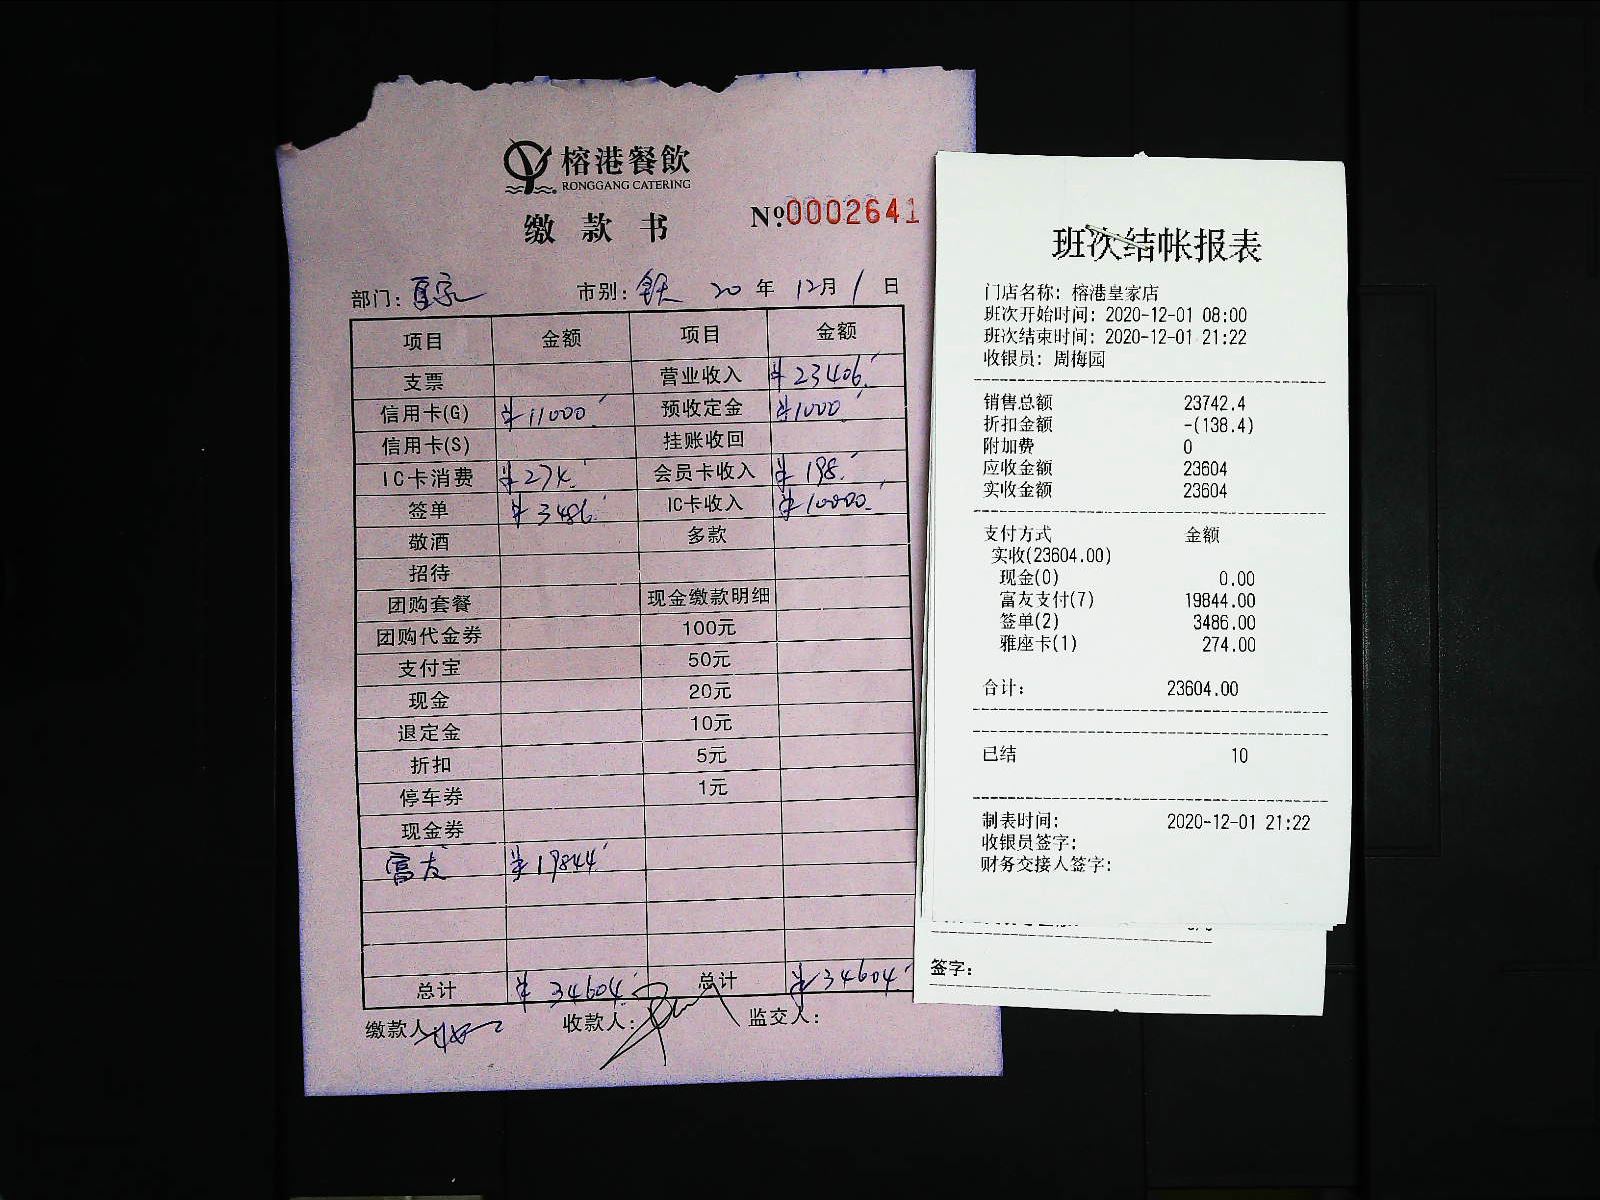 榕港餐飲
RONGGANG CATERING
缴款书
№0002641
部门: 皇家 市别: 全天 20年12月1日
项目 金额 项目 金额
支票 营业收入 ¥23406.
信用卡(G) ¥11000 预收定金 ¥1000
信用卡(S) 挂账收回
IC卡消费 ¥274. 会员卡收入 ¥198.
签单 ¥3486. IC卡收入 ¥10000.
敬酒 多款
招待
团购套餐 现金缴款明细
团购代金券 100元
支付宝 50元
现金 20元
退定金 10元
折扣 5元
停车券 1元
现金券
富友 ¥19844
总计 ¥34604. 总计 ¥34604.
缴款人: 收款人: 监交人:
班次结帐报表
门店名称: 榕港皇家店
班次开始时间: 2020-12-01 08:00
班次结束时间: 2020-12-01 21:22
收银员: 周梅园
销售总额 23742.4
折扣金额 -(138.4)
附加费 0
应收金额 23604
实收金额 23604
支付方式 金额
实收(23604.00)
现金(0) 0.00
富友支付(7) 19844.00
签单(2) 3486.00
雅座卡(1) 274.00
合计: 23604.00
已结 10
制表时间: 2020-12-01 21:22
收银员签字:
财务交接人签字:
签字: